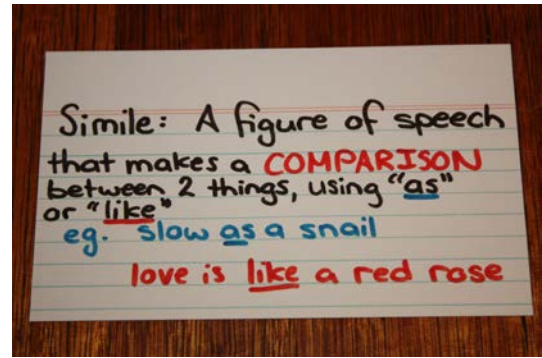 Simile: A figure of speech
that makes a COMPARISON
between 2 things, using "as"
or "like"
eg. slow as a snail
love is like a red rose